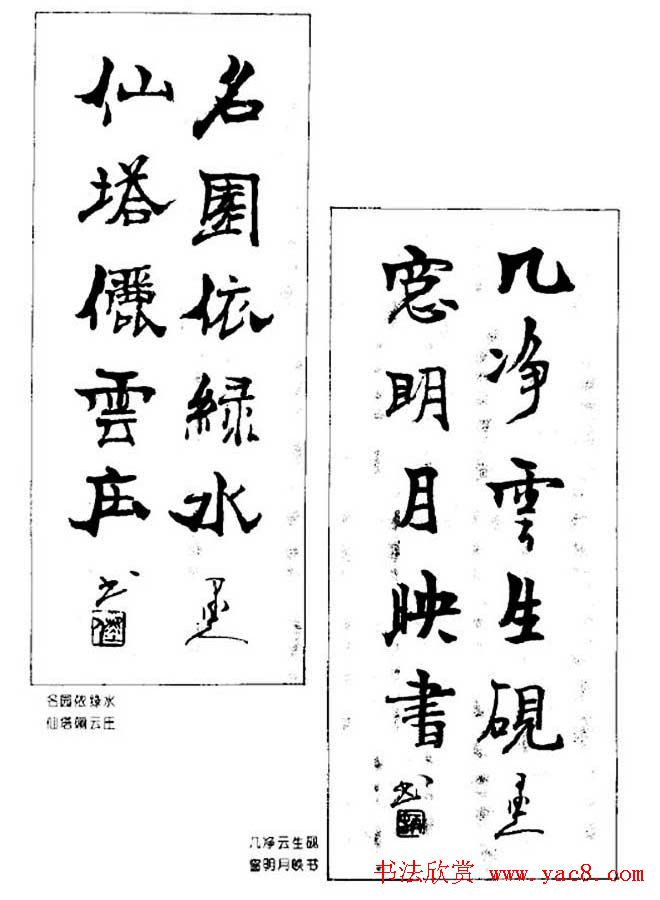 名園依緑水
仙塔儷雲庄
名园依绿水
仙塔俪云庄
几净雲生硯
窓明月映書
几净云生砚
窗明月映书
书法欣赏 www.yac8.com